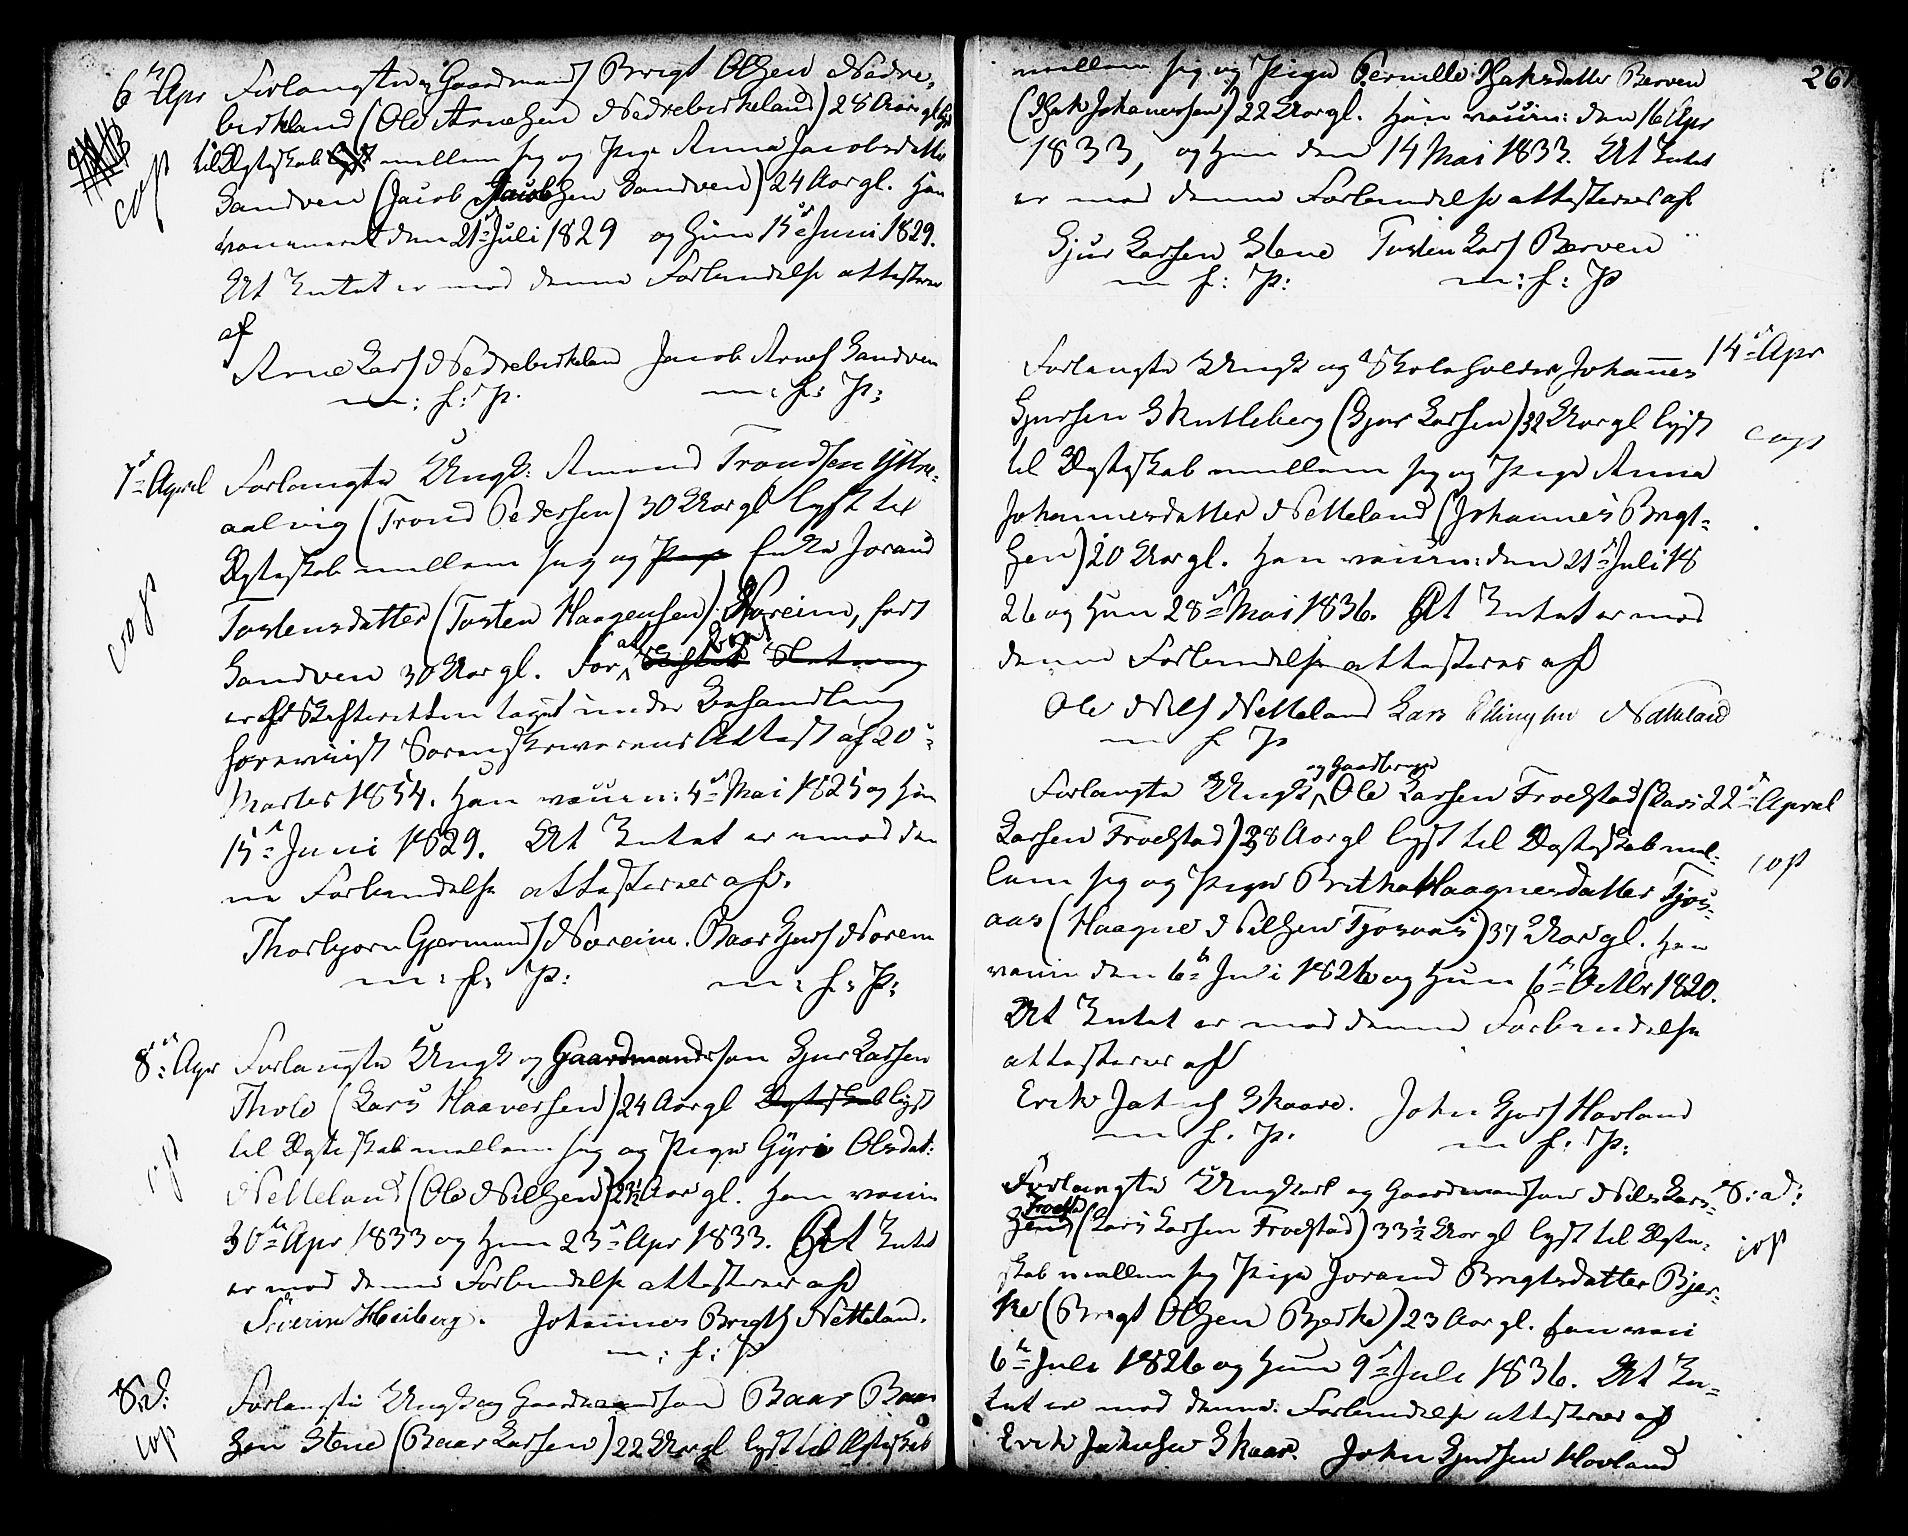 6te Apr Forlangte Gaardmand Brigt Olsen Nedre-
birkeland (Ole Arnesen Nedrebirkeland) 28 Aar gl lyst
til Ægteskab mellem sig og Pige Anna Jacobsdatter
cop
Sandven (Jacob Jacobsen Sandven) 24 Aar gl. Han
vaccineret den 21de Juli 1829 og Hun 15de Juni 1829.
At Intet er mod denne Forbindelse attesteres
af
Arne Lars Nedrebirkeland Jacob Arnes Sandven
m: f: P. m: f: P:
7de April Forlangte Ungk: Amund Trondsen Ytre-
aalvig (Trond Pedersen) 30 Aar gl lyst til
Ægteskab mellem sig og Pige Enke Jorand
cop
Torstensdatter (Torsten Haagensen) Noreim, født
Sandven 30 Aar gl. For at Boet
er af Skifteretten taget under Behandling
forevist Sorenskriverens Attest af 20de
Marts 1854. Han vaccin: 4de Mai 1825 og Hun
15de Juni 1829. At Intet er mod den
ne Forbindelse attesteres af.
Thorbjørn Gjermunds Noreim. Baar Gjers Noreim
m: f: P: m: f: P:
8de Apr Forlangte Ungk og Gaardmandssøn Gjur Larsen
Tholo (Lars Haaversen) 24 Aar gl Ægteskab lyst
til Ægteskab mellem sig og Pige Gyri Olsdat:
Netteland (Ole Nilsen) 23½ Aar gl. Han vaccin
30te Apr 1833 og Hun 23de Apr 1833. At Intet
er mod denne Forbindelse attesteres af
Severin Heiberg. Johannes Brigts Netteland.
m: f: P
S. d: Forlangte Ungk og Gaardmandssøn Baar Baar
cop
sen Stene (Baar Larsen) 22 Aar gl lyst til Ægteskab
267
mellem sig og Pige Pernille Isaksdatter Berven
(Isak Johannessen) 22 Aar gl. Han vaccin: den 16 Apr
1833, og Hun den 14 Mai 1833. At Intet
er mod denne Forbindelse attesteres af
Gjur Larsen Stene Torsten Lars Berven
m f: P: m: f: P
Forlangte Ungk og Skoleholder Johannes 14de Apr
Gjursen Skutleberg (Gjur Larsen) 32 Aar gl lyst
cop
til Ægteskab mellem sig og Pige Anna
Johannesdatter Netteland (Johannes Brigt-
sen) 20 Aar gl. Han vaccin: den 21de Juli 18
26 og Hun 28de Mai 1836. At Intet er mod
denne Forbindelse attesteres af
Ole Nils Netteland Lars Ellingsen Netteland
m f P
Forlangte Ungk og Gaardbruger Ole Larsen Froestad (Lars 22de April
Larsen Froestad) 38 Aar gl lyst til Ægteskab mel-
cop
lem sig og Pige Britha Haagnesdatter Tjos-
aas (Haagne Nilsen Tjosaas) 37 Aar gl. Han
vaccin den 6te Juli 1826 og Hun 6te Octbr 1820.
At Intet er mod denne Forbindelse
attesteres af
Erik Jakobs Skaare. John Gjers Hovland
m f. P. m f: P:
Forlangte Ungkarl og Gaardmandssøn Nils Lars- S: d:
sen Froestad (Lars Larsen Froestad) 33½ Aar gl lyst til Ægte-
cop
skab mellem sig Pige Jorand Brigtsdatter Bjer-
ke (Brigt Olsen Bjerke) 23 Aar gl. Han vacci
6te Juli 1826 og Hun 9de Juli 1836. At In-
tet er mod denne Forbindelse attesteres af
Erik Jakobsen Skaare. John Gjursen Hovland